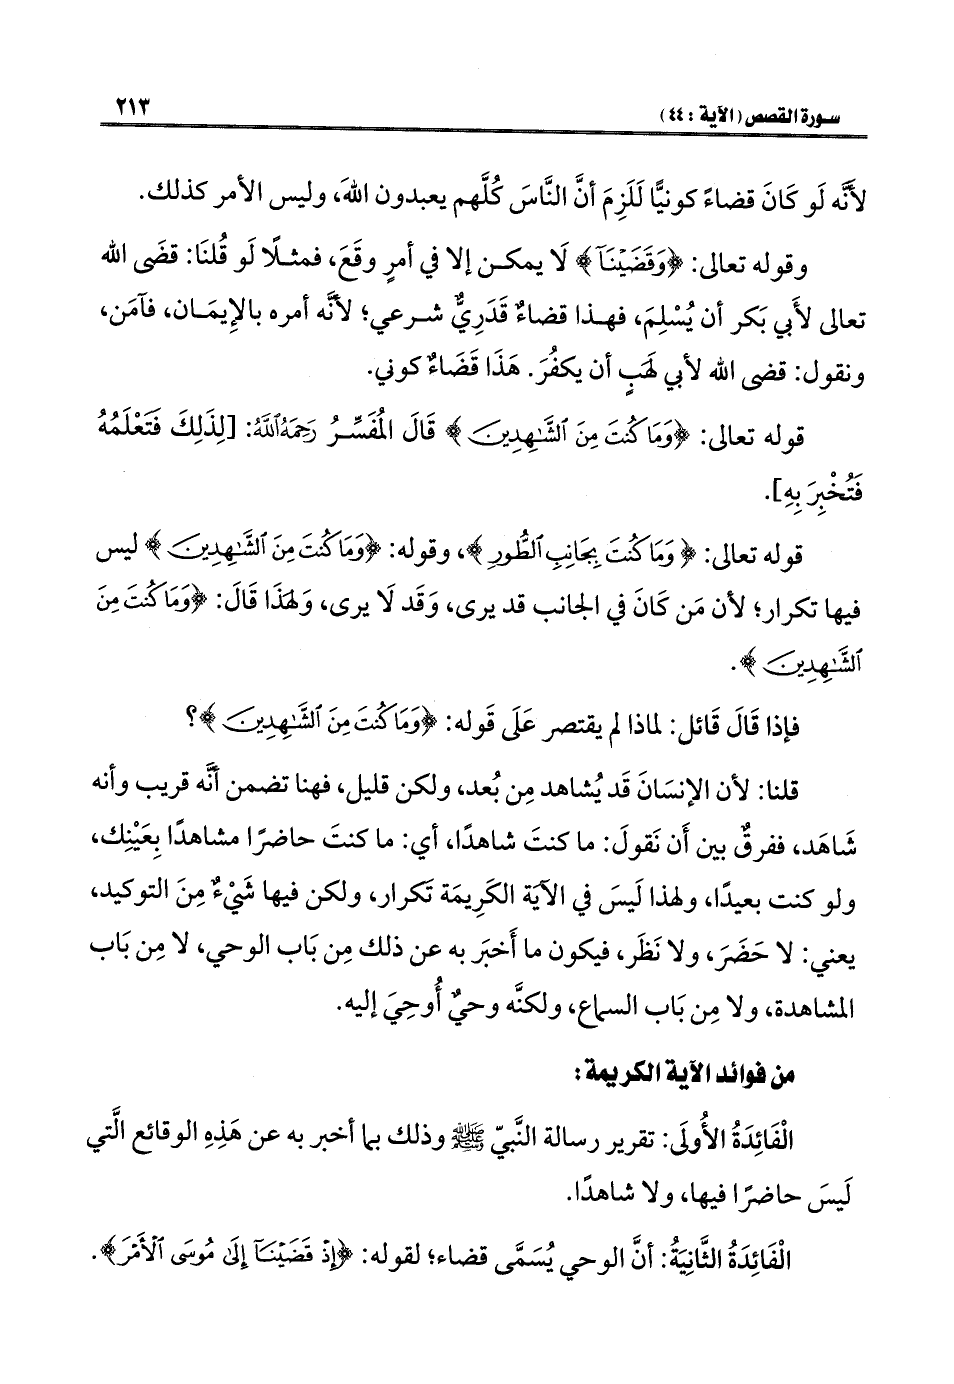 سورة القصص (الآية : ٤٤) ٢١٣
لأَنَّه لَو كَانَ قضاءً كونيًّا لَلَزِمَ أنَّ النَّاسَ كُلَّهم يعبدون اللهَ، وليس الأمر كذلك.
وقوله تعالى: ﴿وَقَضَيْنَآ﴾ لَا يمكن إلا في أمرٍ وقَعَ، فمثلًا لو قُلنَا: قضَى الله
تعالى لأَبي بَكر أن يُسْلِمَ، فهذا قضاءٌ قَدَرِيٌّ شرعي؛ لأنَّه أمره بالإيمَان، فآمَن،
ونقول: قضى الله لأبي لهَبٍ أن يكفُرَ. هَذَا قَضَاءٌ كوني.
قوله تعالى: ﴿وَمَا كُنتَ مِنَ الشَّٰهِدِينَ﴾ قَالَ المُفَسِّرُ رَحِمَهُ ٱللَّهُ: [لِذَلِكَ فَتَعْلَمُهُ
فَتُخْبِرَ بِهِ].
قوله تعالى: ﴿وَمَا كُنتَ بِجَانِبِ ٱلطُّورِ﴾، وقوله: ﴿وَمَا كُنتَ مِنَ ٱلشَّٰهِدِينَ﴾ ليس
فيها تكرار؛ لأن مَن كَانَ في الجانب قد يرى، وَقَد لَا يرى، وَلهَذَا قَالَ: ﴿وَمَا كُنتَ مِنَ
ٱلشَّٰهِدِينَ﴾.
فإذا قَالَ قَائل: لماذا لم يقتصر عَلَى قَوله: ﴿وَمَا كُنتَ مِنَ ٱلشَّٰهِدِينَ﴾؟
قلنا: لأن الإنسَانَ قَد يُشاهد مِن بُعد، ولكن قليل، فهنا تضمن أنَّه قريب وأنه
شَاهَد، ففرقٌ بين أَن نَقولَ: ما كنتَ شاهدًا، أي: ما كنتَ حاضرًا مشاهدًا بِعَيْنِك،
ولو كنت بعيدًا، ولهذا لَيسَ في الآيَة الكَرِيمَة تَكرار، ولكن فيها شَيْءٌ مِنَ التوكيد،
يعني: لا حَضَرَ، ولا نَظَر، فيكون ما أَخبَر به عن ذلك مِن بَاب الوحي، لا مِن بَاب
المشاهدة، ولا مِن بَاب السماع، ولكنَّه وحيٌ أُوحِيَ إليه.
من فوائد الآية الكريمة:
الْفَائِدَةُ الأُولَى: تقرير رسالة النَّبيّ ﷺ وذلك بما أخبر به عن هَذِهِ الوقائع الَّتي
لَيسَ حاضرًا فيها، ولا شاهدًا.
الْفَائِدَةُ الثَّانِيَةُ: أنَّ الوحي يُسَمَّى قضاء؛ لقوله: ﴿إِذْ قَضَيْنَآ إِلَىٰ مُوسَى ٱلْأَمْرَ﴾.